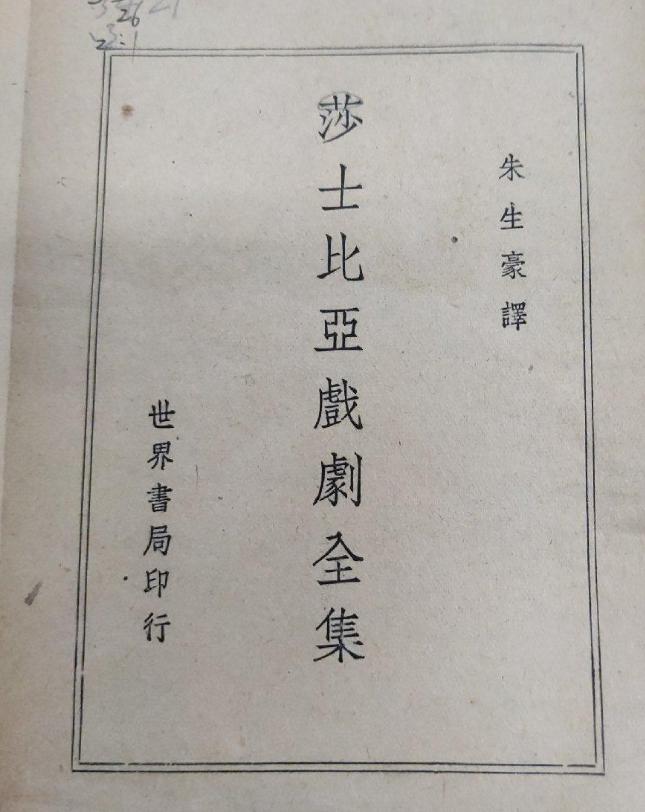 朱生豪譯
莎士比亞戲劇全集
世界書局印行